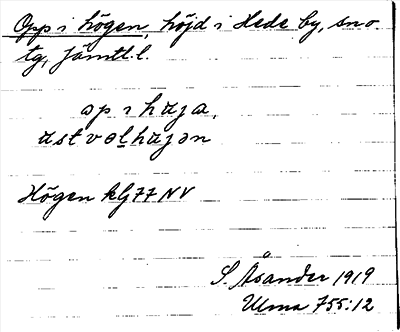 Opp i högen, höjd i Hede by, sno.
tg, Jämtl. l.
op i haja,
astvalhajən
Högen kg 77 NV
S. Åsander 1919
Ulma 755:12